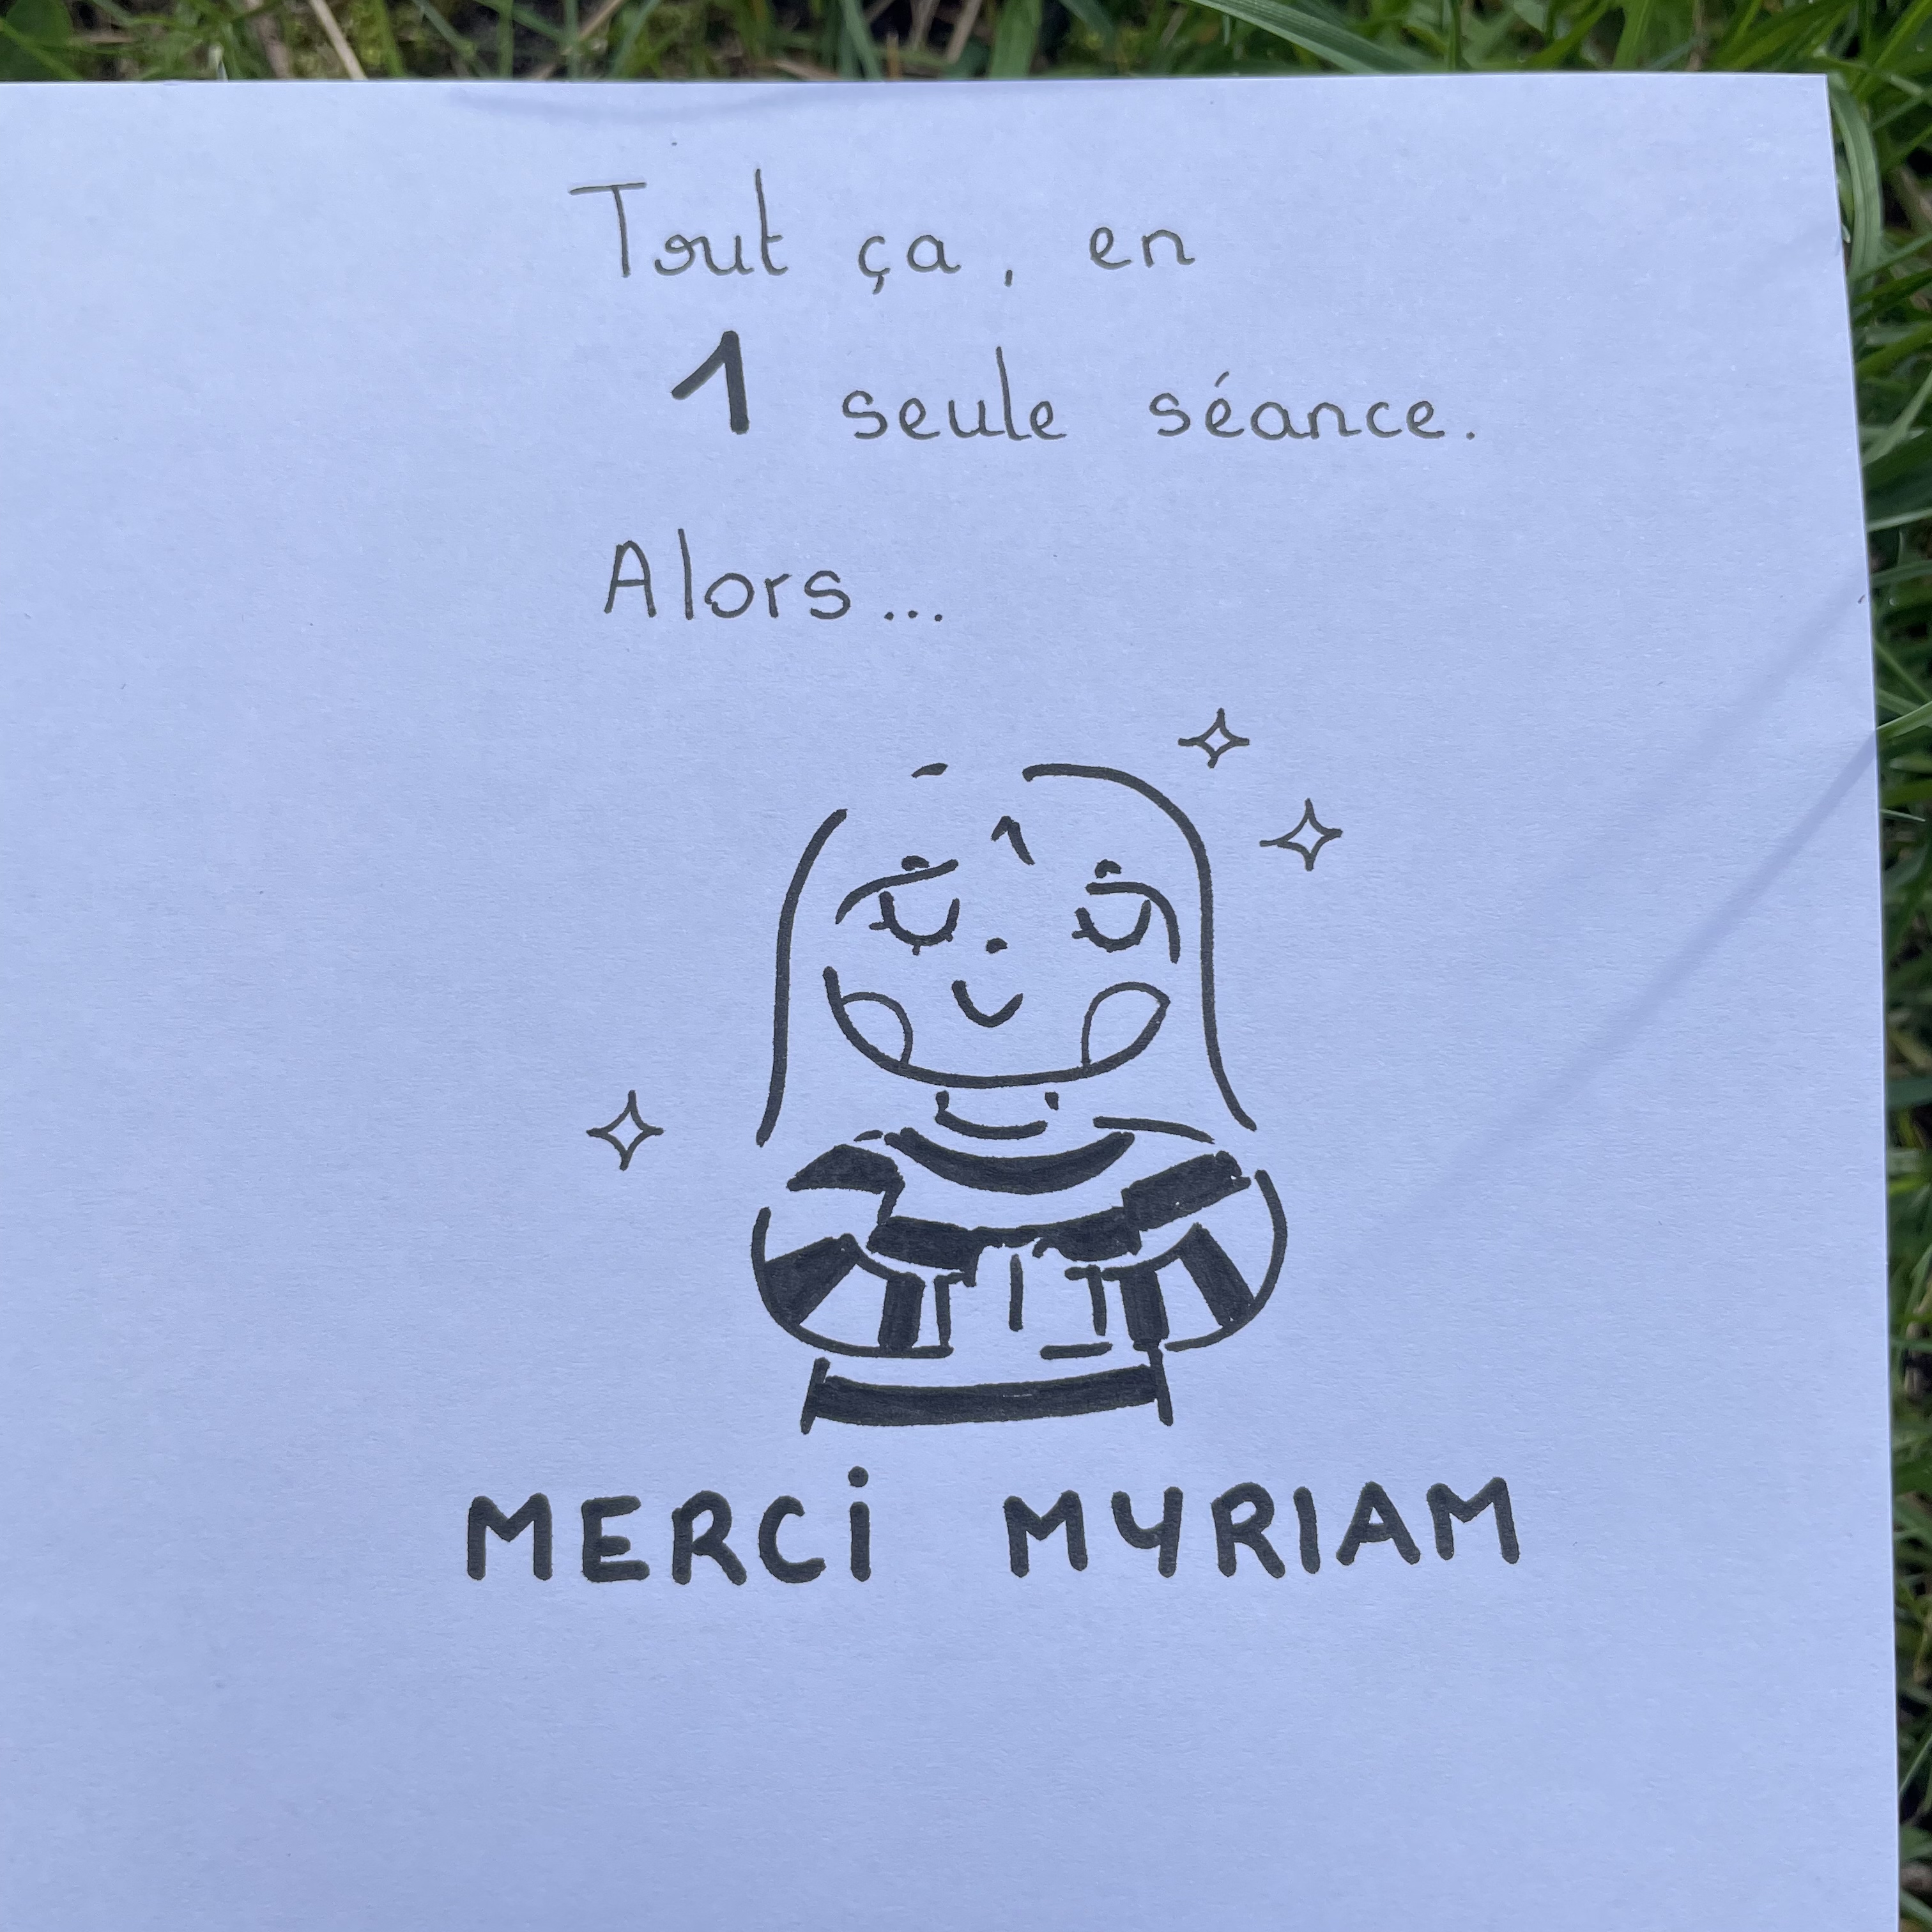 Tout ça, en
1 seule séance.
Alors...
MERCi MYRIAM